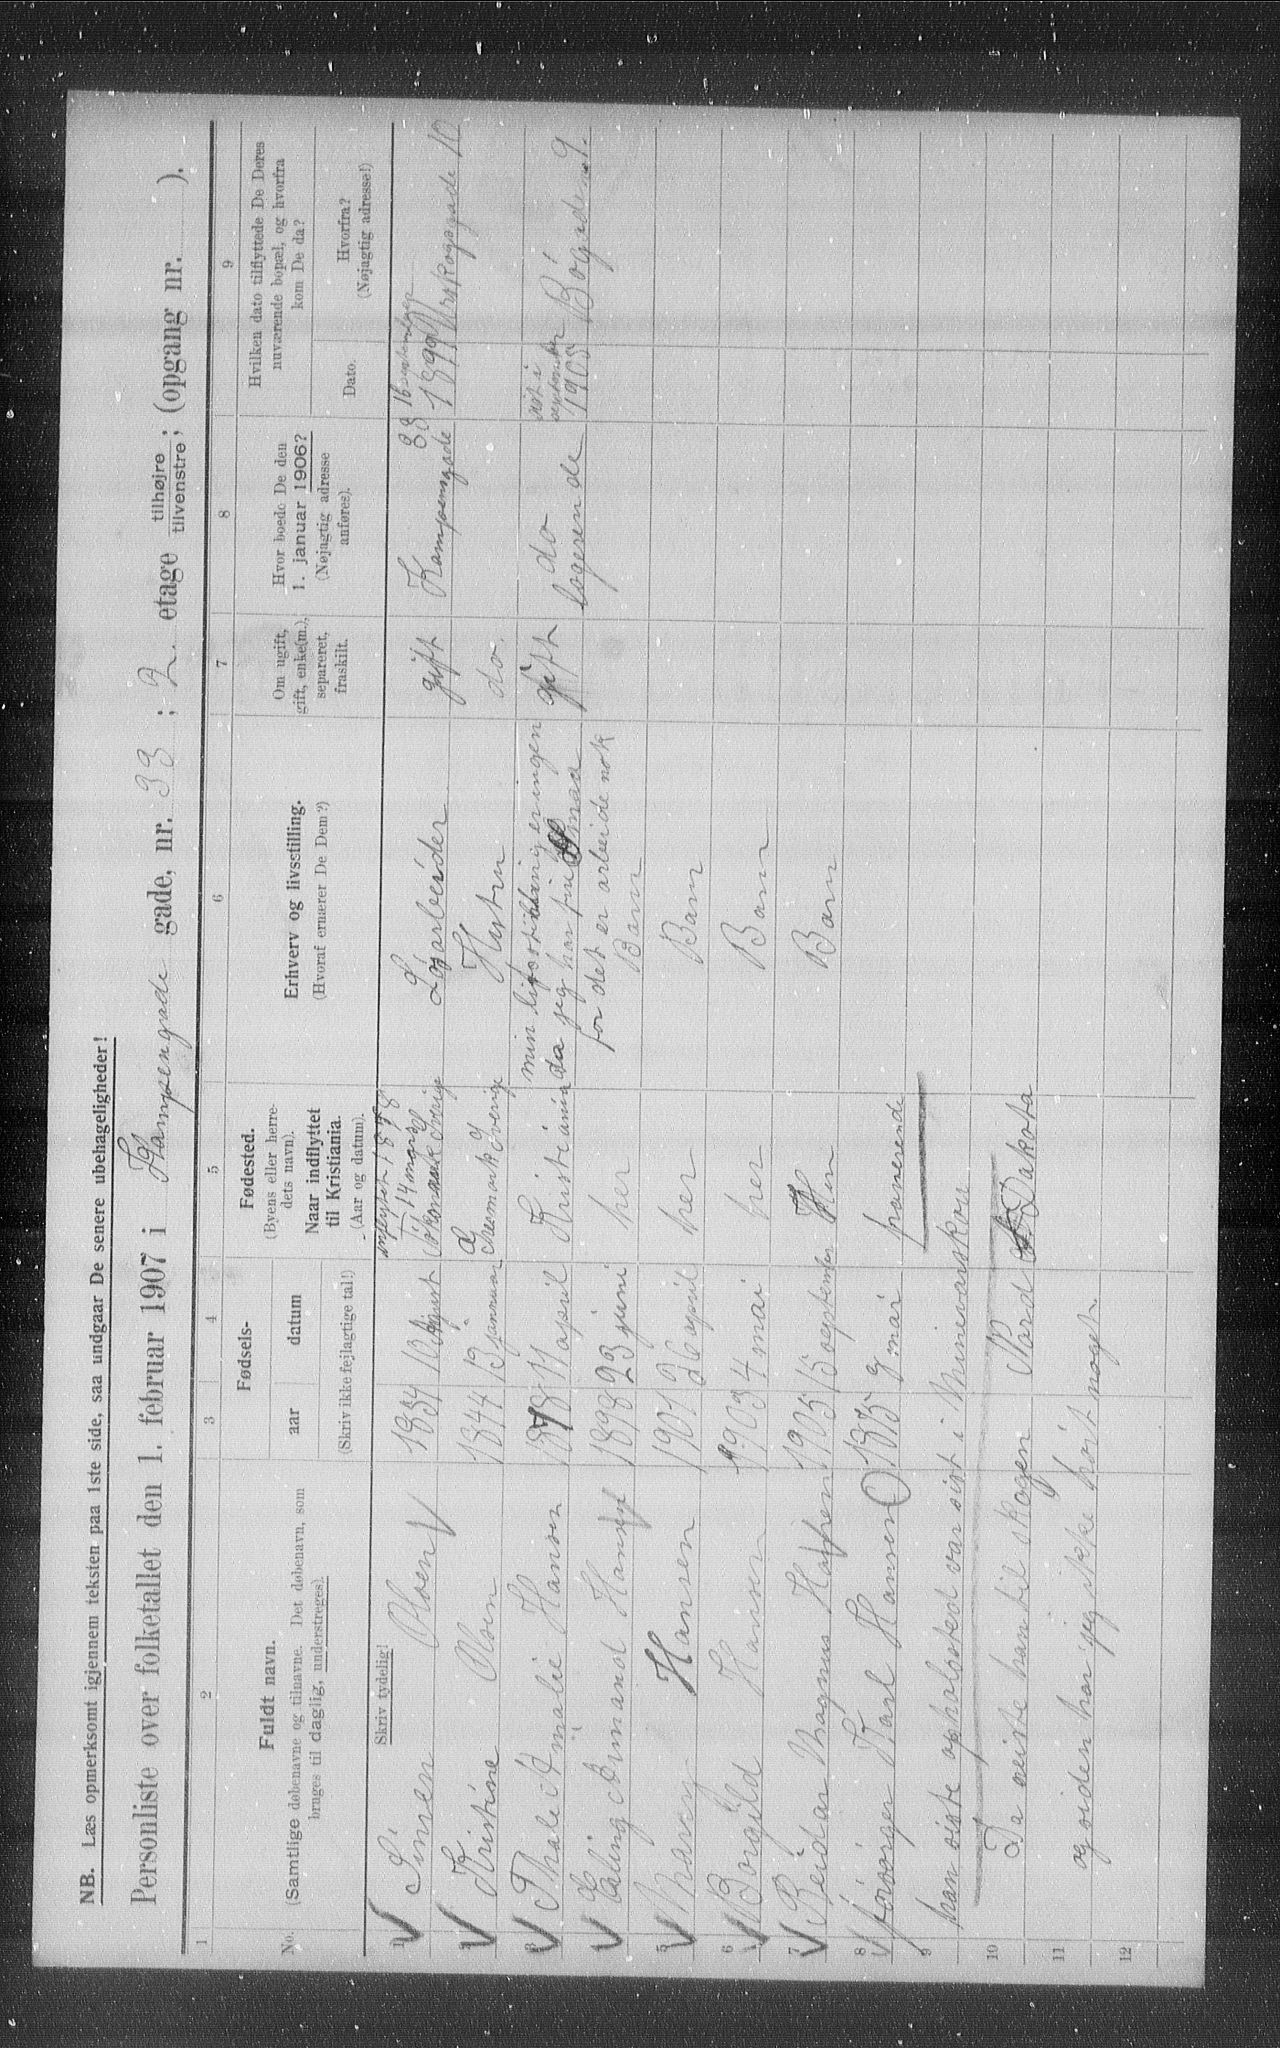 NB. Læs opmerksomt igjennem teksten paa 1ste side, saa undgaar De senere ubehageligheder!
Personliste over folketallet den 1. februar 1907 i Kampengade gade, nr. 33 ; 2. etage tilhøjre/tilvenstre; (opgang nr. ).
1 2 3 4 5 6 7 8 9
No.
Fuldt navn.
(Samtlige døbenavne og tilnavne. Det døbenavn, som
bruges til daglig, understreges).
Fødsels-
aar datum
(Skriv ikke fejlagtige tal!)
Fødested.
(Byens eller herre-
dets navn).
Naar indflyttet
til Kristiania.
(Aar og datum).
Erhverv og livsstilling.
(Hvoraf ernærer De Dem?)
Om ugift,
gift, enke(m.),
separeret,
fraskilt.
Hvor boede De den
1. januar 1906?
(Nøjagtig adresse
anføres).
Hvilken dato tilflyttede De Deres
nuværende bopæl, og hvorfra
kom De da?
Dato.
Hvorfra?
(Nøjagtig adresse!)
Skriv tydelig!
1 Simen Olsen 1834 gift Kampensgade 33 16 september 1899 10
2 Kristine Olsen 1844 13 januar Sverige do.
3 Thale Amalie Hansen 1878 11 april Kristiania min er ingen gift do 1905 Bögaden 9.
da jeg har maa
logerende
4 Erling Armand Hansen 1898 23 juni her Barn
for det er arbeide nok
5 Hansen 1901 26 april her Barn
6 Borgild Hansen 1903 4 mai her Barn
7 Reidar Magnus Hansen 1905 15 september Her Barn
8 forsörger Karl Hansen 1875 9 mai
9 han siste opholdsted var sist i
10 Da reiste han til skogen Nord Dakota
11 og siden har jeg ikke hört noget.
12